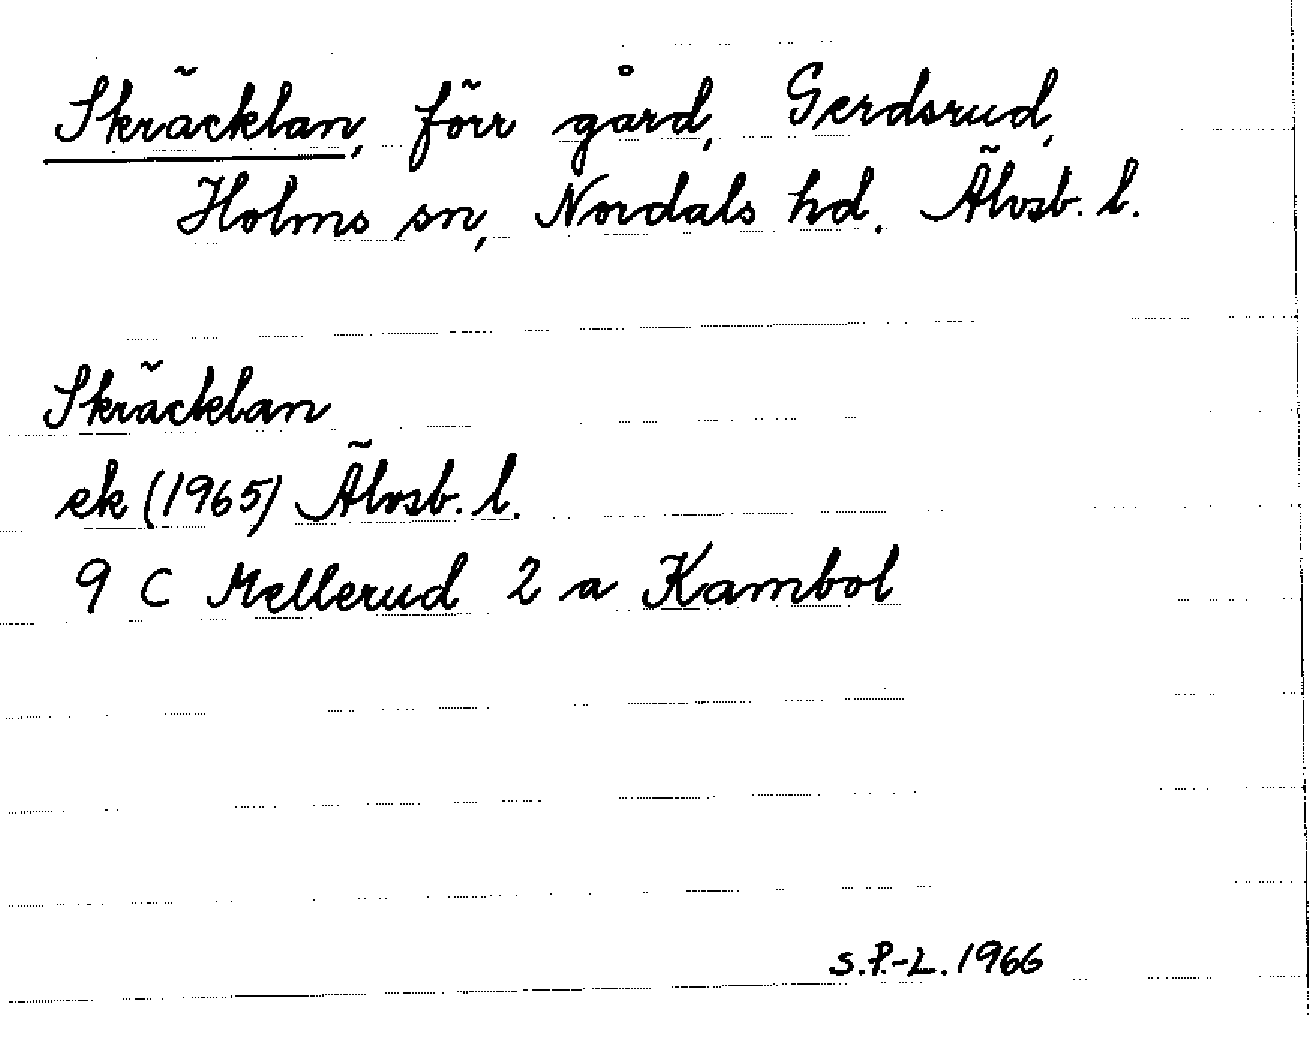 Skräcklan, förr gård, Gerdsrud,
Holms sn, Nordals hd. Älvsb. l.
Skräcklan
ek (1965) Älvsb. l.
9 C Mellerud 2 a Kambol
S.P.-L. 1966